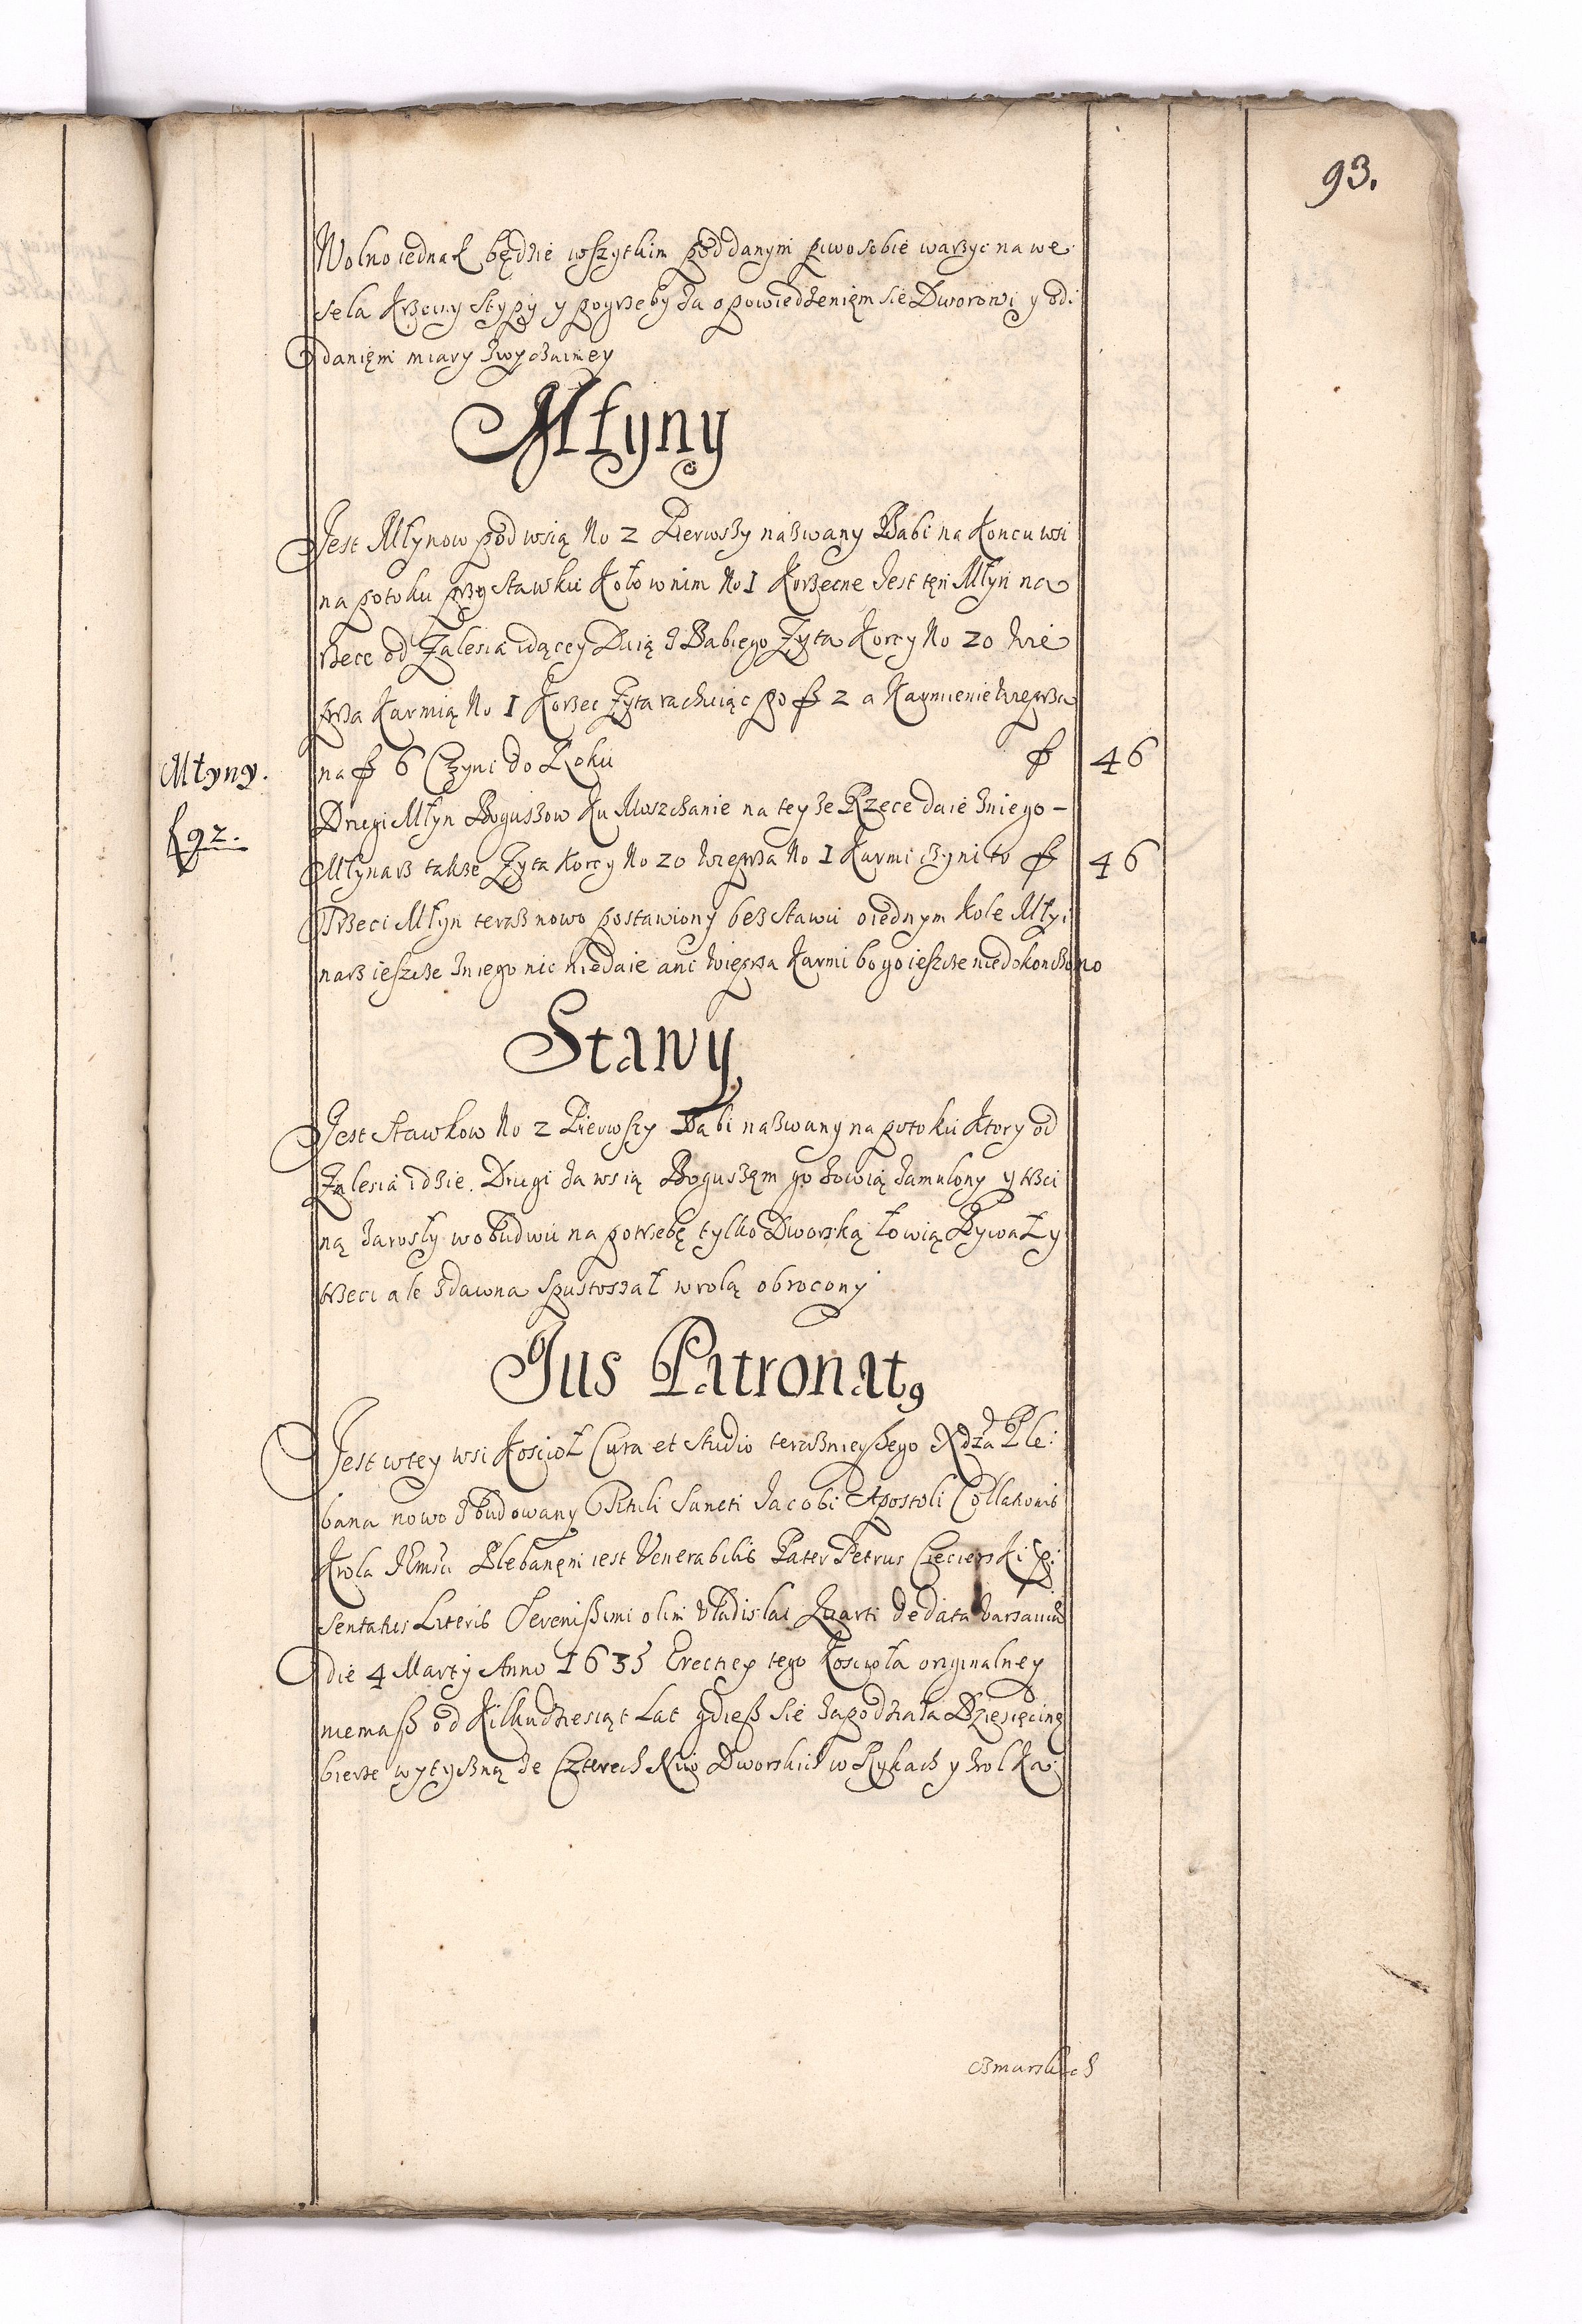 93.
Wolno iednak będzie wszytkim poddanym piwo sobie warzyc na we
sela Krzciny Stypy y pogrzeby za opowiedzenięm sie Dworowi y od:
danięm miary zwyczainey
Młyny
Jest Młynow pod wsią No 2 Pierwszy nazwany Babi na Koncu wsi
na potoku przy Stawku Koło w nim No 1 Korzecne Jest tęn Młyn na
Rzece od Zalesia idącey Daią z Babiego Zyta Korcy No 20 Wie
prza Karmią No 1 Korzec Zyta rachuiąc po f 2 a Karmienie Wieprza
na f 6 Czyni do Roku f 46
Młyny.
f 92.
Drugi Młyn Boguszow Ku Moszchanie na tey ze Rzece daie z niego –
Młynarz takze Zyta Korcy No 20 wieprza No 1 Karmi czyni to f 46
Trzeci Młyn teraz nowo postawiony bez Stawu o iednym Kole Młyi
narz ieszcze z niego nic niedaie ani wieprza Karmi bo go ieszcze niedokonczono
Stawy
Jest Stawkow No 2 Pierwszy Babi nazwany na potoku Ktory od
Zalesia idzie. Drugi za wsią Boguszęm go zowią zamulony y trzci
ną zarosły w obudwu na potrzebę tylko Dworską łowią Bywał y
trzeci ale zdawna Spustoszał w rolą obrocony
Jus Patronatꝰ
Jest w tey wsi Koscioł Cura et Studio teraznieyszego Xdza Ple:
bana nowo zbudowany Tituli Sancti Jacobi Apostoli Collationis
Krola JEmsci Plebanęm iest Venerabilis Pater Petrus Czecierski Pr:
sentatus Literis Serenissimi olim Vladislai Quarti de data Varsaviæ
die 4 Martÿ Anno 1635 Erectiey tego Koscioła originalney
niemasz od Kilkudziesiąt Lat gdiesz sie zapodziała Dziesięcinę
bierze wytyczną ze Czterech Niw Dworskich w Rykach y z rol Ka:
czmarskich